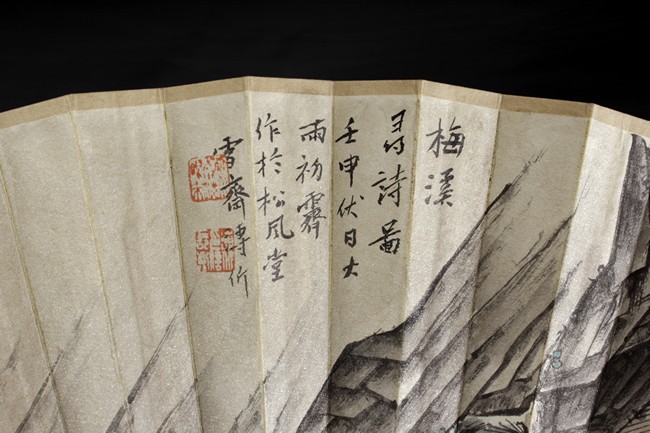 梅溪
尋詩圖
壬申伏日大
雨初霽
作於松風堂
雪齋